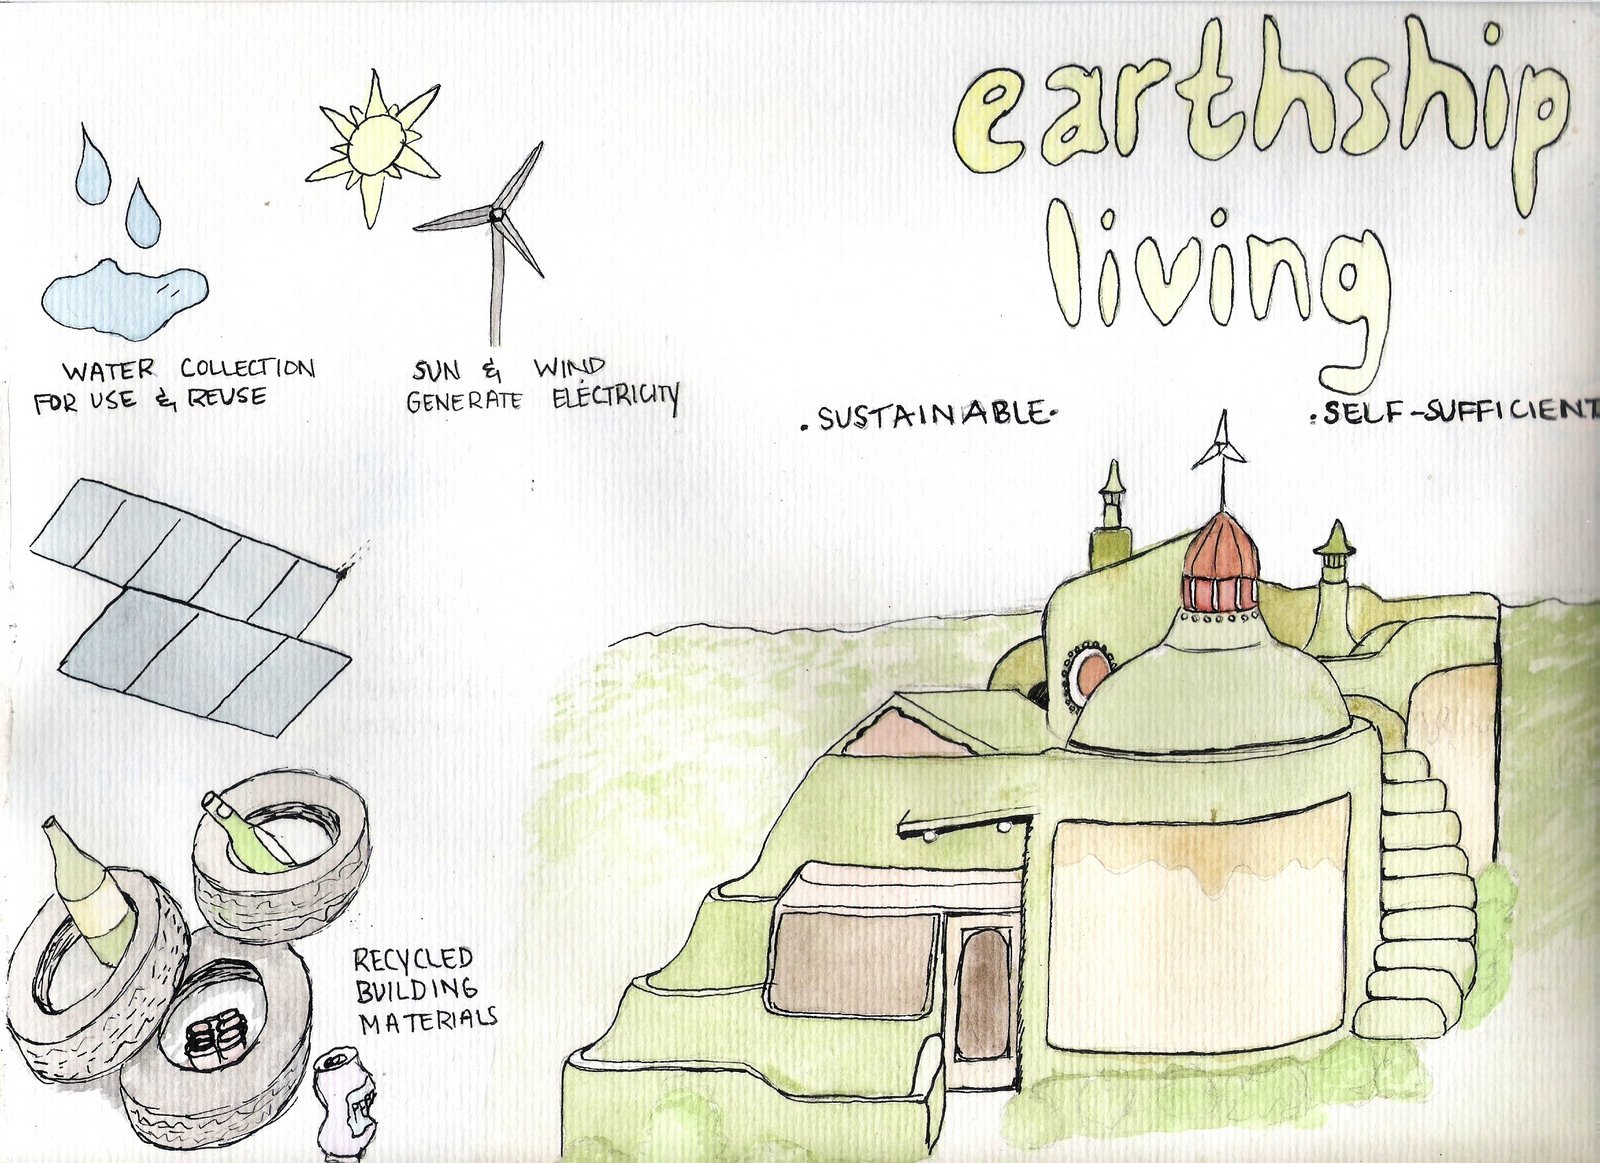 earthship
living
WATER COLLECTION
FOR USE & REUSE
SUN & WIND
GENERATE ELECTRICITY
.SUSTAINABLE.
.SELF-SUFFICIENT
RECYCLED
BUILDING
MATERIALS